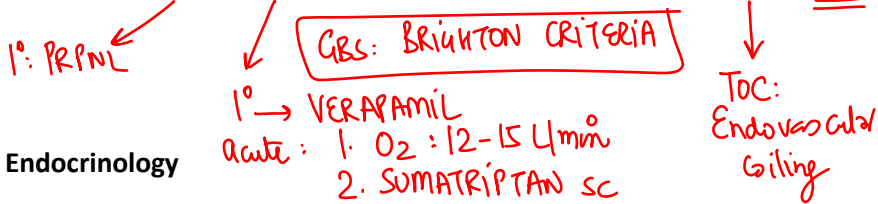 1°: PRPNL
GBS: BRIGHTON CRITERIA
1° → VERAPAMIL
acute: 1. O2: 12-15 L/min
2. SUMATRIPTAN SC
TOC:
Endovascular
Coiling
Endocrinology